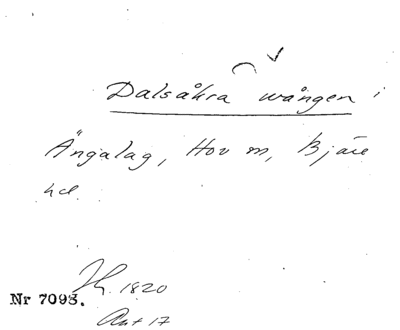 Dalsåkra wången i
Ängalag, Hov sn, Bjäre
hd.
Nr 7093.
1820
Akt 17